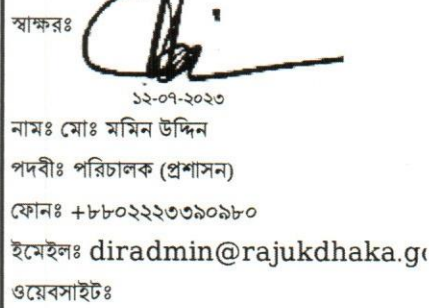 স্বাক্ষরঃ
১২-০৭-২০২৩
নামঃ মোঃ মমিন উদ্দিন
পদবীঃ পরিচালক (প্রশাসন)
ফোনঃ +৮৮০২২২৩৩৯০৯৮০
ইমেইলঃ diradmin@rajukdhaka.go
ওয়েবসাইটঃ